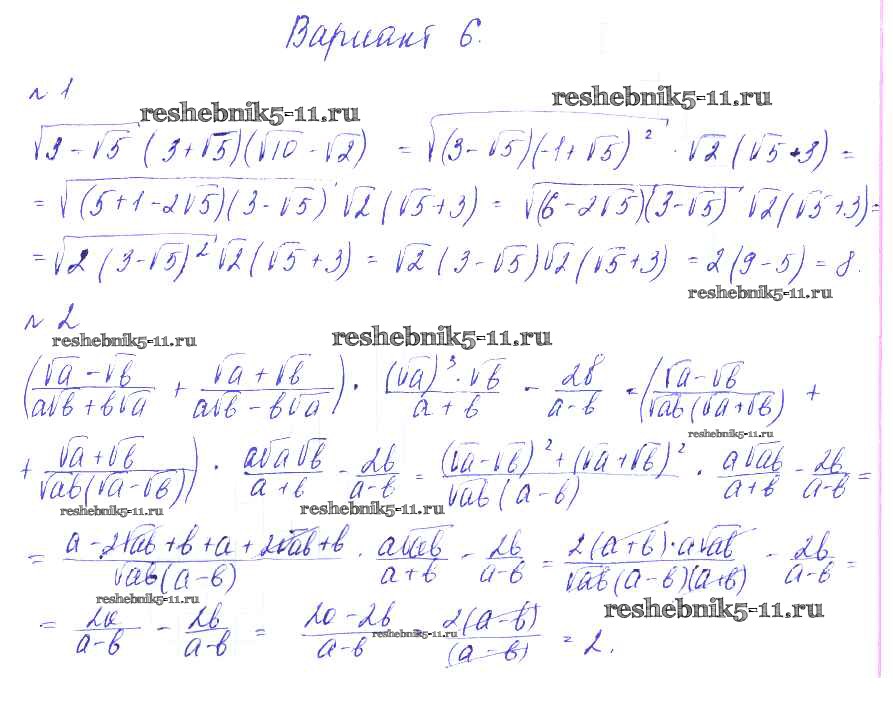 Вариант 6.
№ 1
reshebnik5-11.ru reshebnik5-11.ru
√3 − √5 (3 + √5)(√10 − √2) = √(3 − √5)(−1 + √5)² · √2 (√5 + 3) =
= √(5 + 1 − 2√5)(3 − √5) √2 (√5 + 3) = √(6 − 2√5)(3 − √5) √2 (√5 + 3) =
= √2 (3 − √5)² √2 (√5 + 3) = √2 (3 − √5)√2 (√5 + 3) = 2(9 − 5) = 8.
reshebnik5-11.ru
№ 2
reshebnik5-11.ru reshebnik5-11.ru
((√a − √b)/(a√b + b√a) + (√a + √b)/(a√b − b√a)) · ((√a)³ · √b)/(a + b) − 2b/(a − b) = ((√a − √b)/(√ab(√a + √b)) +
reshebnik5-11.ru
+ (√a + √b)/(√ab(√a − √b))) · (a√a√b)/(a + b) − 2b/(a − b) = ((√a − √b)² + (√a + √b)²)/(√ab(a − b)) · (a√ab)/(a + b) − 2b/(a − b) =
reshebnik5-11.ru reshebnik5-11.ru
= (a − 2√ab + b + a + 2√ab + b)/(√ab(a − b)) · (a√ab)/(a + b) − 2b/(a − b) = (2(a + b) · a√ab)/(√ab(a − b)(a + b)) − 2b/(a − b) =
reshebnik5-11.ru reshebnik5-11.ru
= 2a/(a − b) − 2b/(a − b) = (2a − 2b)/(a − b) = 2(a − b)/(a − b) = 2.
reshebnik5-11.ru